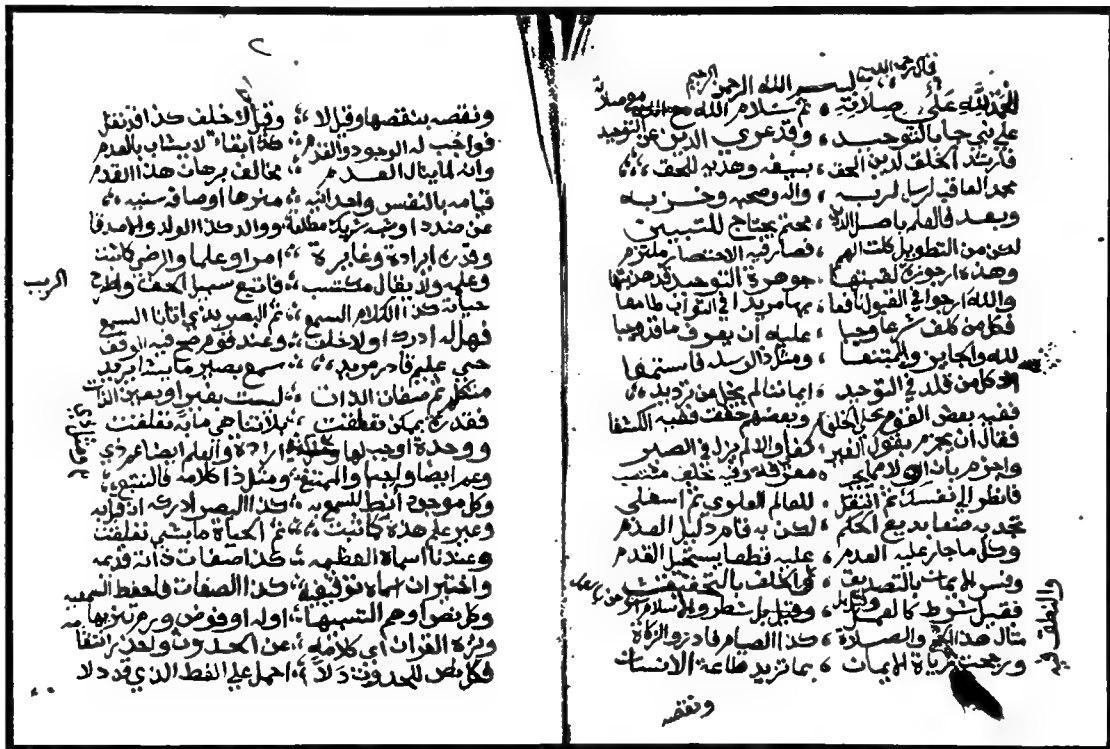 قال رحمه الله
بسم الله الرحمن الرحيم
الحمد لله على صلاته ، ثم سلام الله مع صلاته
على نبي جاء بالتوحيد ، وقد عرى الدين عن التوحيد
فارشد الخلق لدين الحق ، بسيفه وهديه للحق
محمد العاقب لرسل ربه ، وآله وصحبه وحزبه
وبعد فالعلم باصل الدين ، محتم يحتاج للتبيين
لكن من التطويل كلت الهمم ، فصار فيه الاختصار ملتزم
وهذه ارجوزة لقبتها ، جوهرة التوحيد قد هذبتها
والله ارجوا في القبول نافعا ، بها مريدا في الثواب طامعا
فكل من كلف شرعا وجبا ، عليه أن يعرف ما قد وجبا
لله والجايز والممتنعا ، ومثل ذا لرسله فاستمعا
اذ كل من قلد في التوحيد ، ايمانه لم يخل من ترديد
ففيه بعض القوم يحكي الخلفا ، وبعضهم حقق فيه الكشفا
فقال ان يجزم بقول الغير ، كفى والا لم يزل في الضير
واجزم بان اولا مما يجب ، معرفة وفيه خلف منتصب
فانظر الى نفسك ثم انتقل ، للعالم العلوي ثم السفلي
تجد به صنعا بديع الحكم ، لكن به قام دليل العدم
وكل ما جاز عليه العدم ، عليه قطعا يستحيل القدم
وفسر الايمان بالتصديق ، والنطق فيه الخلف بالتحقيق
فقيل شرط كالعمل وقيل بل ، شطر والاسلام اشرحن بالعمل
مثال هذا الحج والصلاة ، كذا الصيام فادر والزكاة
ورجحت زيادة الايمان ، بما تزيد طاعة الانسان
ونقصه
ونقصه بنقصها وقيل لا ، وقيل لا خلف كذا قد نقل
فواجب له الوجود والقدم ، كذا بقاء لا يشاب بالعدم
وانه لما ينال العدم ، مخالف برهان هذا القدم
قيامه بالنفس وحدانيه ، منزها اوصافه سنيه
عن ضد او شبه شريك مطلقا ، ووالد كذا الولد والاصدقا
وقدرة ارادة وغايرة ، امرا وعلما والرضى كما ثبت
وعلمه ولا يقال مكتسب ، فاتبع سبيل الحق واطرح الريب
حياته كذا الكلام السمع ، ثم البصر بذي اتانا السمع
فهل له ادراك او لا خلف ، وعند قوم صح فيه الوقف
حي عليم قادر مريد ، سمع بصير ما يشا يريد
متكلم ثم صفات الذات ، ليست بغير او بعين الذات
فقدرة بممكن تعلقت ، بلا تناهي ما به تعلقت
ووحدة اوجب لها ومثل ذي ، ارادة والعلم ايضا عم ذي
وعم ايضا واجبا والممتنع ، ومثل ذا كلامه فالنتبع
وكل موجود أنط للسمع به ، كذا البصر ادراكه ان قيل به
وغير علم هذه كما ثبت ، ثم الحياة ما بشي تعلقت
وعندنا اسماه العظيمه ، كذا صفات ذاته قديمه
واختير ان اسماه توقيفيه ، كذا الصفات فاحفظ السمعيه
وكل نص اوهم التشبيها ، اوله او فوض ورم تنزيها
ونزه القران اى كلامه ، عن الحدوث واحذر انتقامه
فكل نص للحدوث دلا ، احمل على اللفظ الذي قد دلا